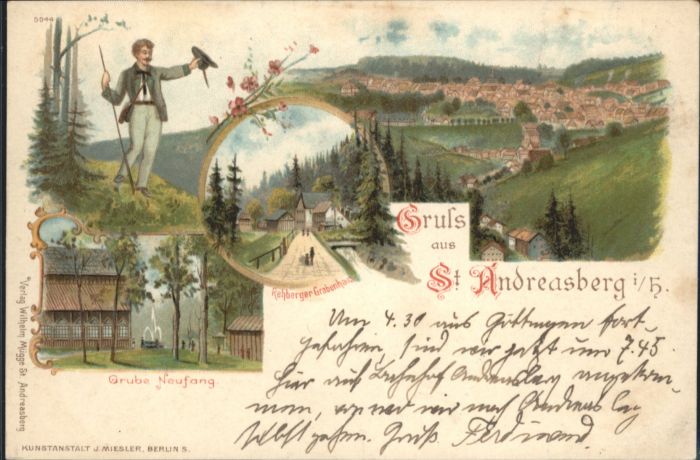 5944
Gruss
aus
St Andreasberg i/H.
Rehberger-Grabenhaus
Grube Neufang.
Verlag Wilhelm Mügge St. Andreasberg
KUNSTANSTALT J. MIESLER, BERLIN S.
Um 4.30 aus Göttingen fort-
gefahren, sind wir jetzt um 7.45
hier auf Bahnhof Andreasberg angekom-
men, wir nach Andreasberg
selbst gehen. Gruß Ferdinand.